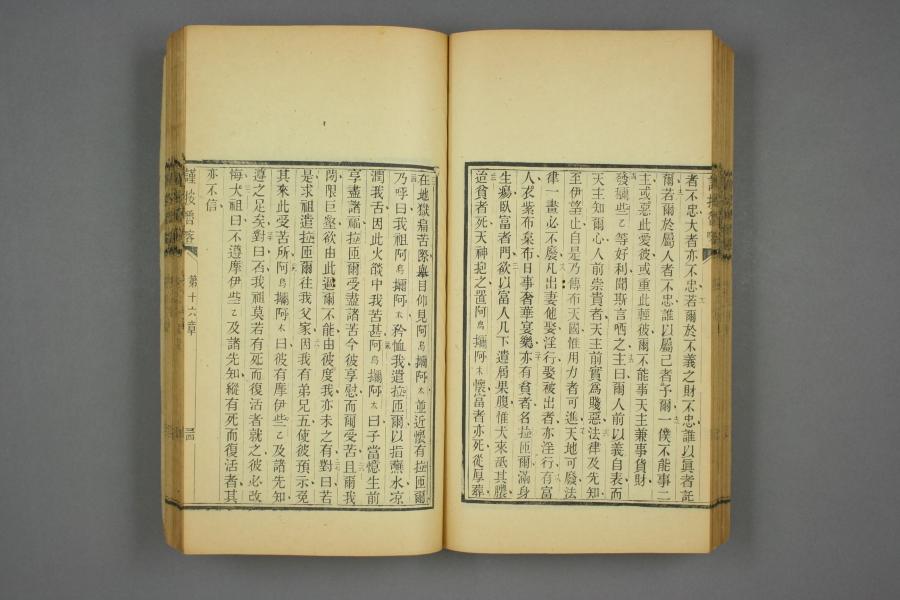 者不忠大者亦不忠若爾於不義之財不忠誰以眞者託
爾若爾於屬人者不忠誰以屬己者予爾一僕不能事二
主或惡此愛彼或重此輕彼爾不能事天主兼事貨財
發𠵽些乙等好利聞斯言哂之主曰爾人前以義自表而
天主知爾心人前崇貴者天主前實爲賤惡法律及先知
至伊望止自是乃傳布天國惟用力者可進天地可廢法
律一畫必不廢凡出妻他娶淫行娶被出者亦淫行有富
人衣紫布槼布日事奢華宴樂亦有貧者名拉匝爾滿身
生瘍臥富者門欲以富人几下遺屑果腹惟犬來舐其膿
迨貧者死天神抱之置阿烏擱阿木懷富者亦死從厚葬
在地獄痛苦際舉目仰見阿烏擱阿木並近懷有拉匝爾
乃呼曰我祖阿烏擱阿木矜恤我遣拉匝爾以指蘸水凉
潤我舌因此火燄中我苦甚阿烏擱阿木曰子當憶生前
享盡諸福拉匝爾受盡諸苦今彼享慰而爾受苦且爾我
閒限巨壑欲由此過爾不能由彼度我亦未之有對曰若
是求祖遣拉匝爾往我父家因我有弟兄五使彼預示免
其來此受苦所阿烏擱阿木曰彼有摩伊些乙及諸先知
遵之足矣對曰否我祖莫若有死而復活者就之彼必改
悔犬祖曰不遵摩伊些乙及諸先知縱有死而復活者其
亦不信
第十六章